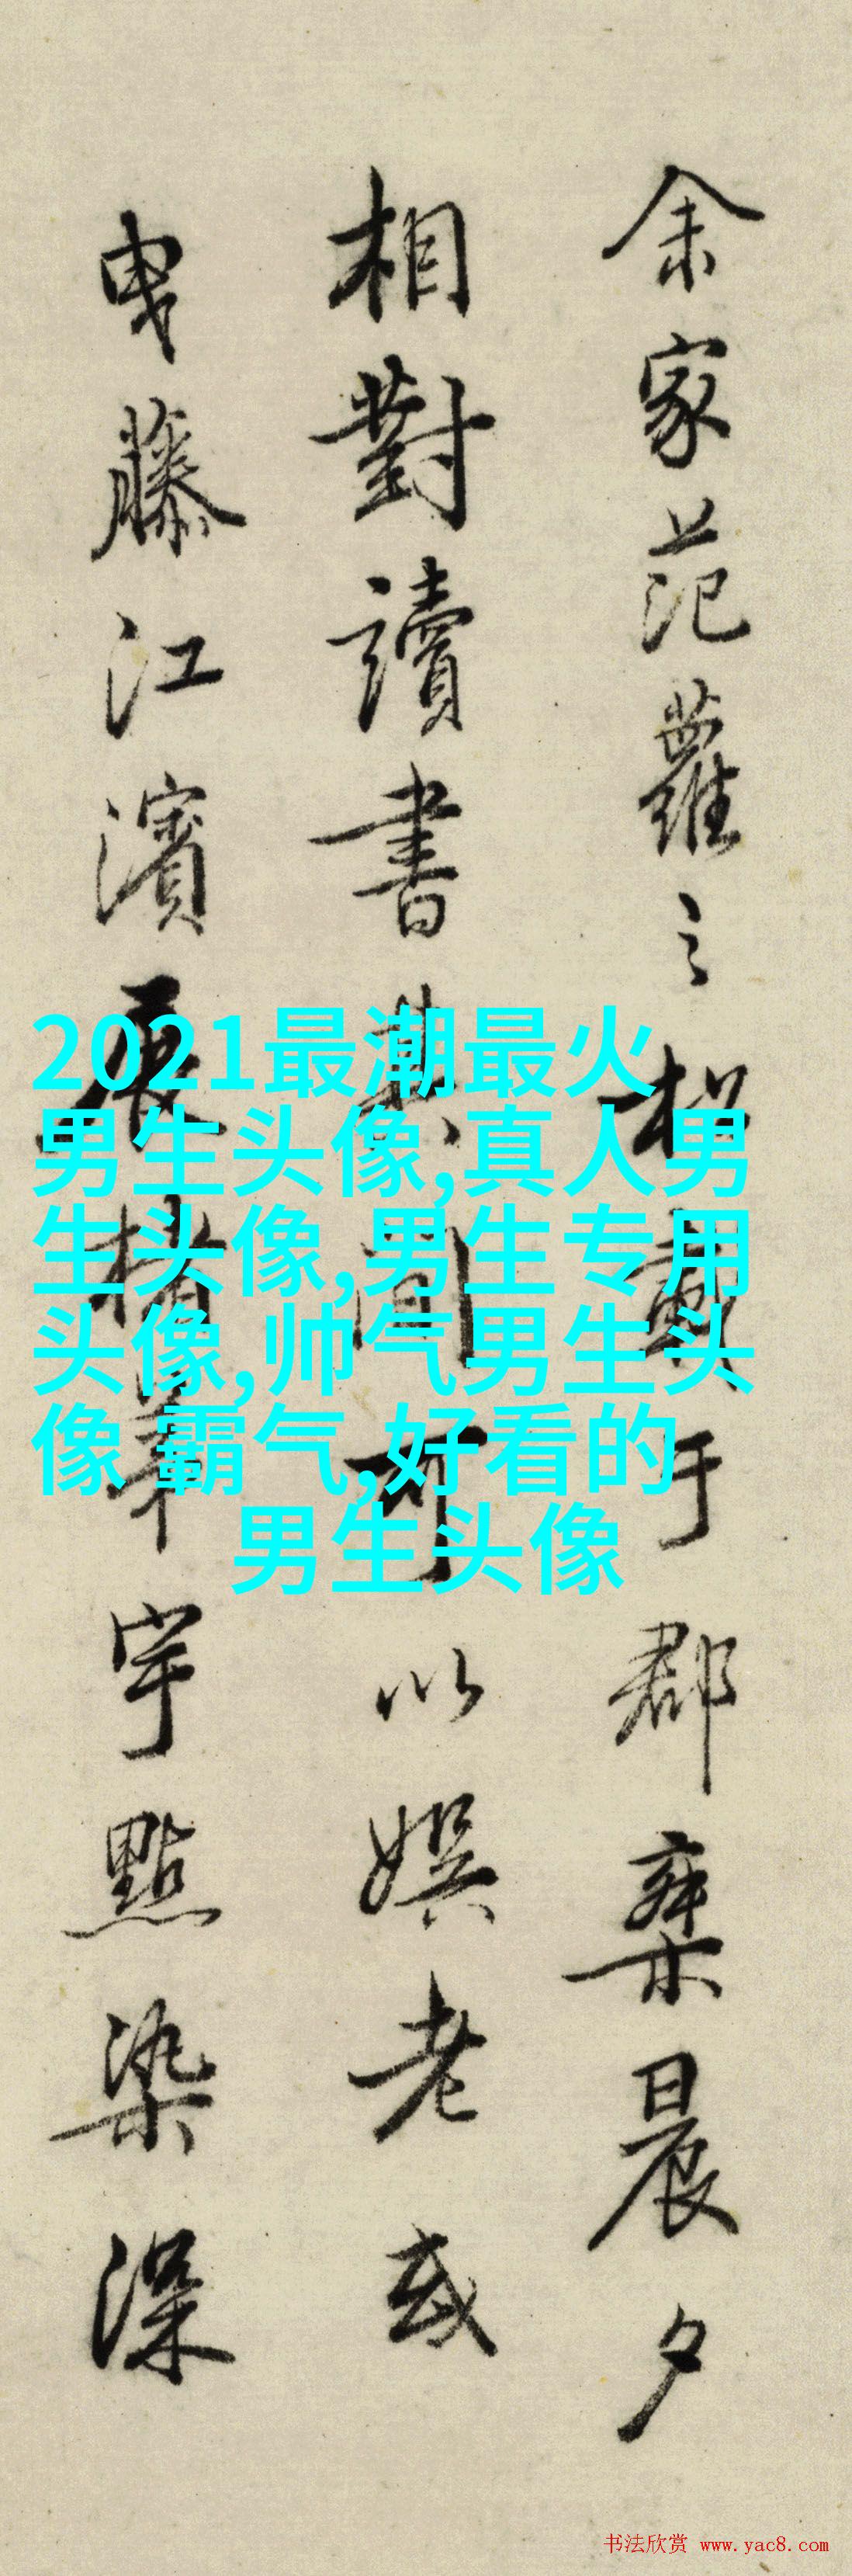 余家范蘿之
于郡齋晨夕
相對讀書
間可以娛老或
曳藤江濱展楮
宇點染深
2021最潮最火
男生头像,真人男
生头像,男生专用
头像,帅气男生头
像 霸气,好看的
男生头像
书法欣赏 www.yac8.com